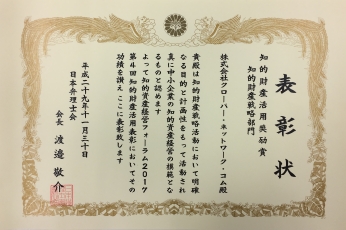 表彰状
知的財産活用奨励賞
知的財産戦略部門
株式会社グローバー・ネットワーク・コム殿
貴殿は知的財産戦略活動において明確
なる目的と計画性をもって活動され
真に中小企業の知的資産経営の模範とな
るものと認めます
よって知的資産経営フォーラム2017
第4回知的財産活用表彰においてその
功績を讃えここに表彰致します
平成二十九年十一月三十日
日本弁理士会
会長 渡邉敬介